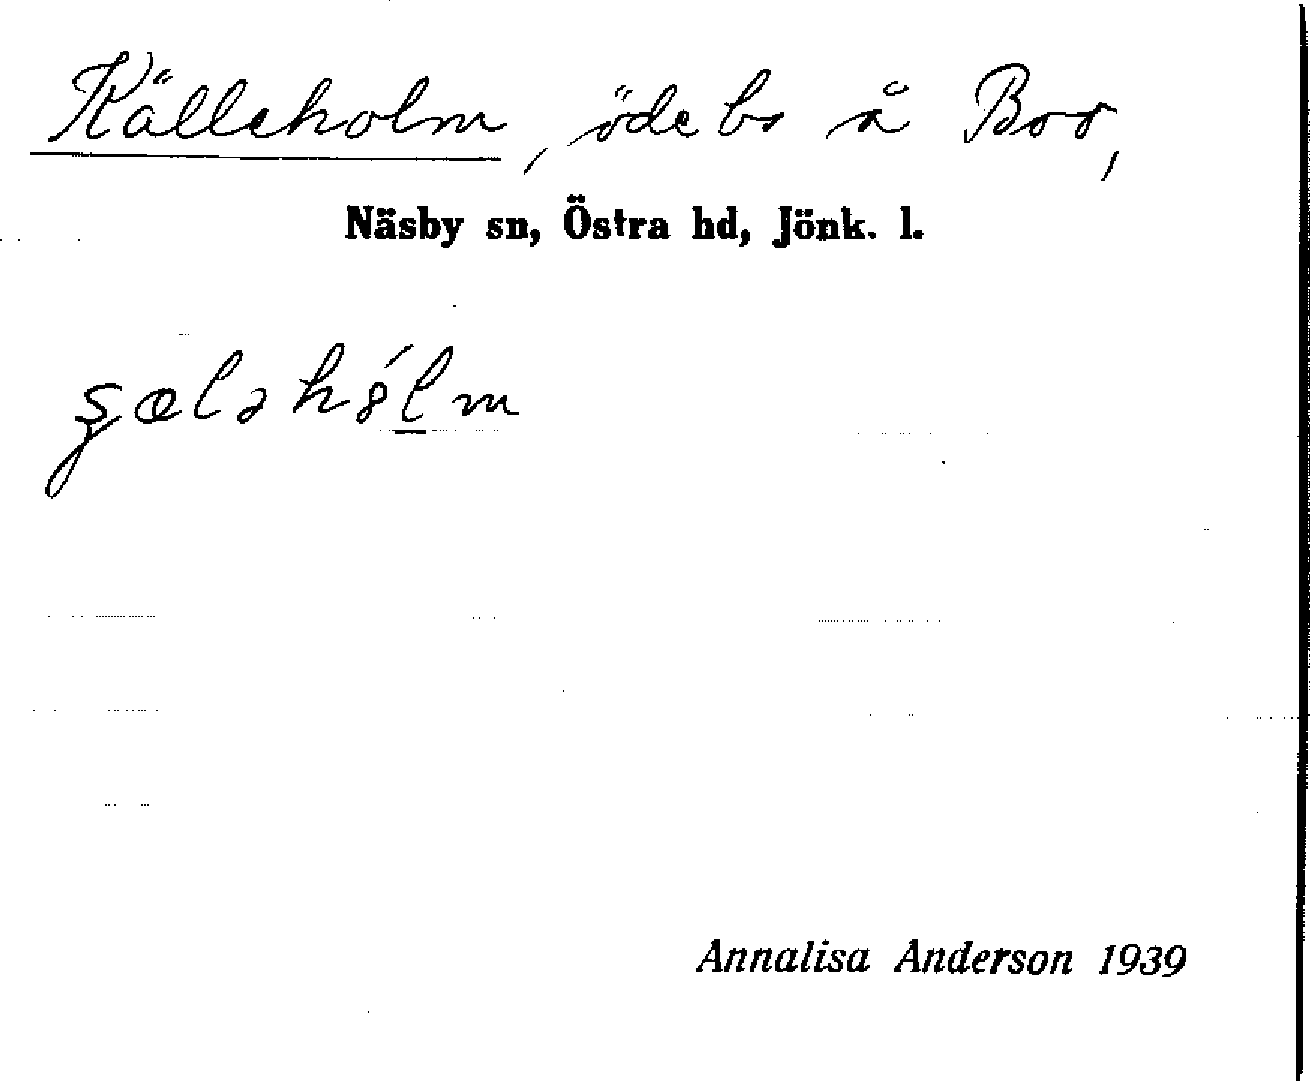 Källeholm, ödebs å Boo,
Näsby sn, Östra hd, Jönk. l.
Annalisa Anderson 1939